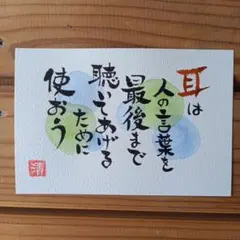 耳は
人の言葉を
最後まで
聴いてあげる
ために
使おう